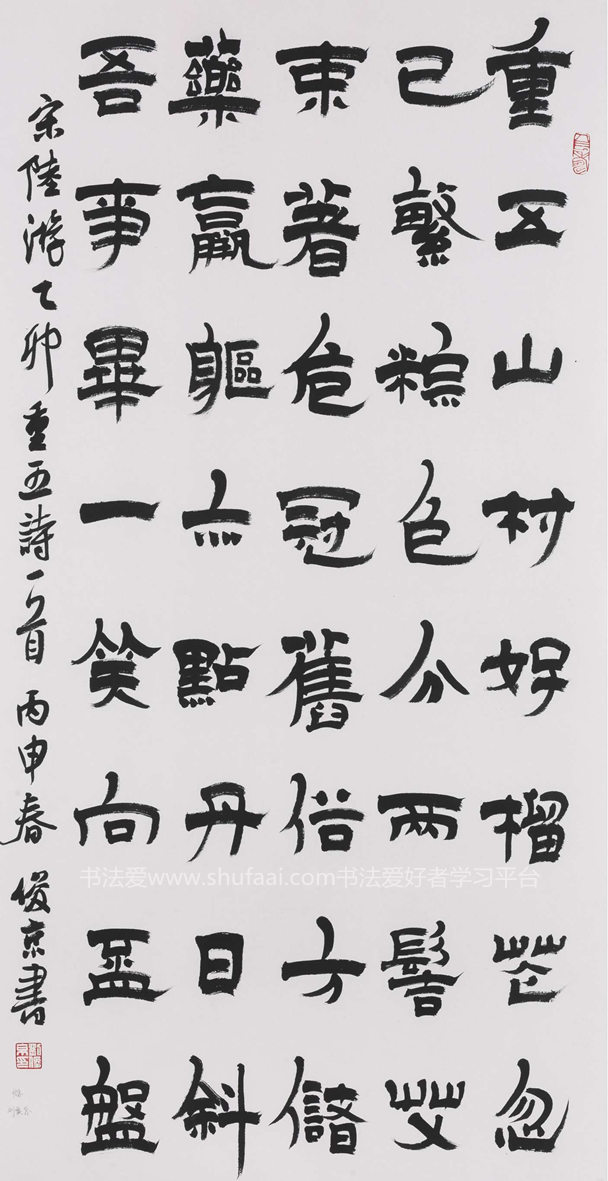 重五山村好榴花忽
已繁粽包分兩髻艾
束著危冠舊俗方儲
藥羸軀亦點丹日斜
吾事畢一笑向盃盤
宋陸游乙卯重五詩一首 丙申春 俊京書
书法爱www.shufaai.com书法爱好者学习平台